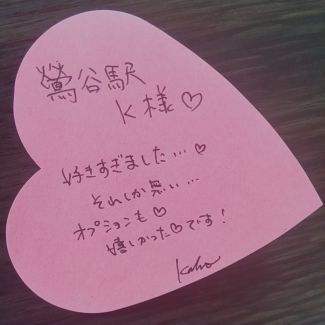 鶯谷駅
K様♡
好きすぎました…♡
それしか無い…
オプションも♡
嬉しかった♡です!
Kaho